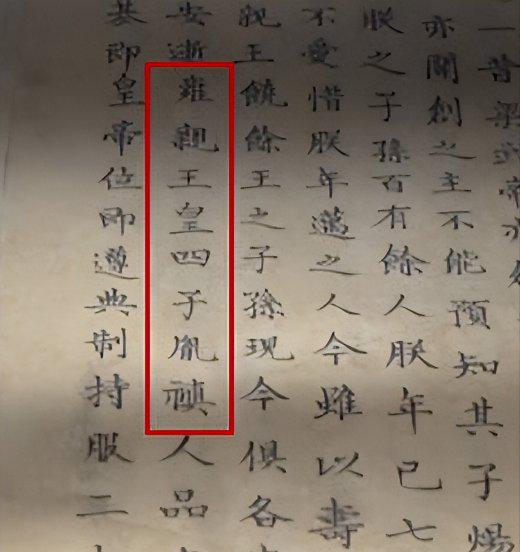 一昔梁武帝亦
亦開創之主不能預知其子煬
朕之子孫百有餘人朕年已七
不愛惜朕年邁之人今雖以壽
親王饒餘王之子孫現今俱各
安逝雍親王皇四子胤禛人品
基即皇帝位即遵典制持服二